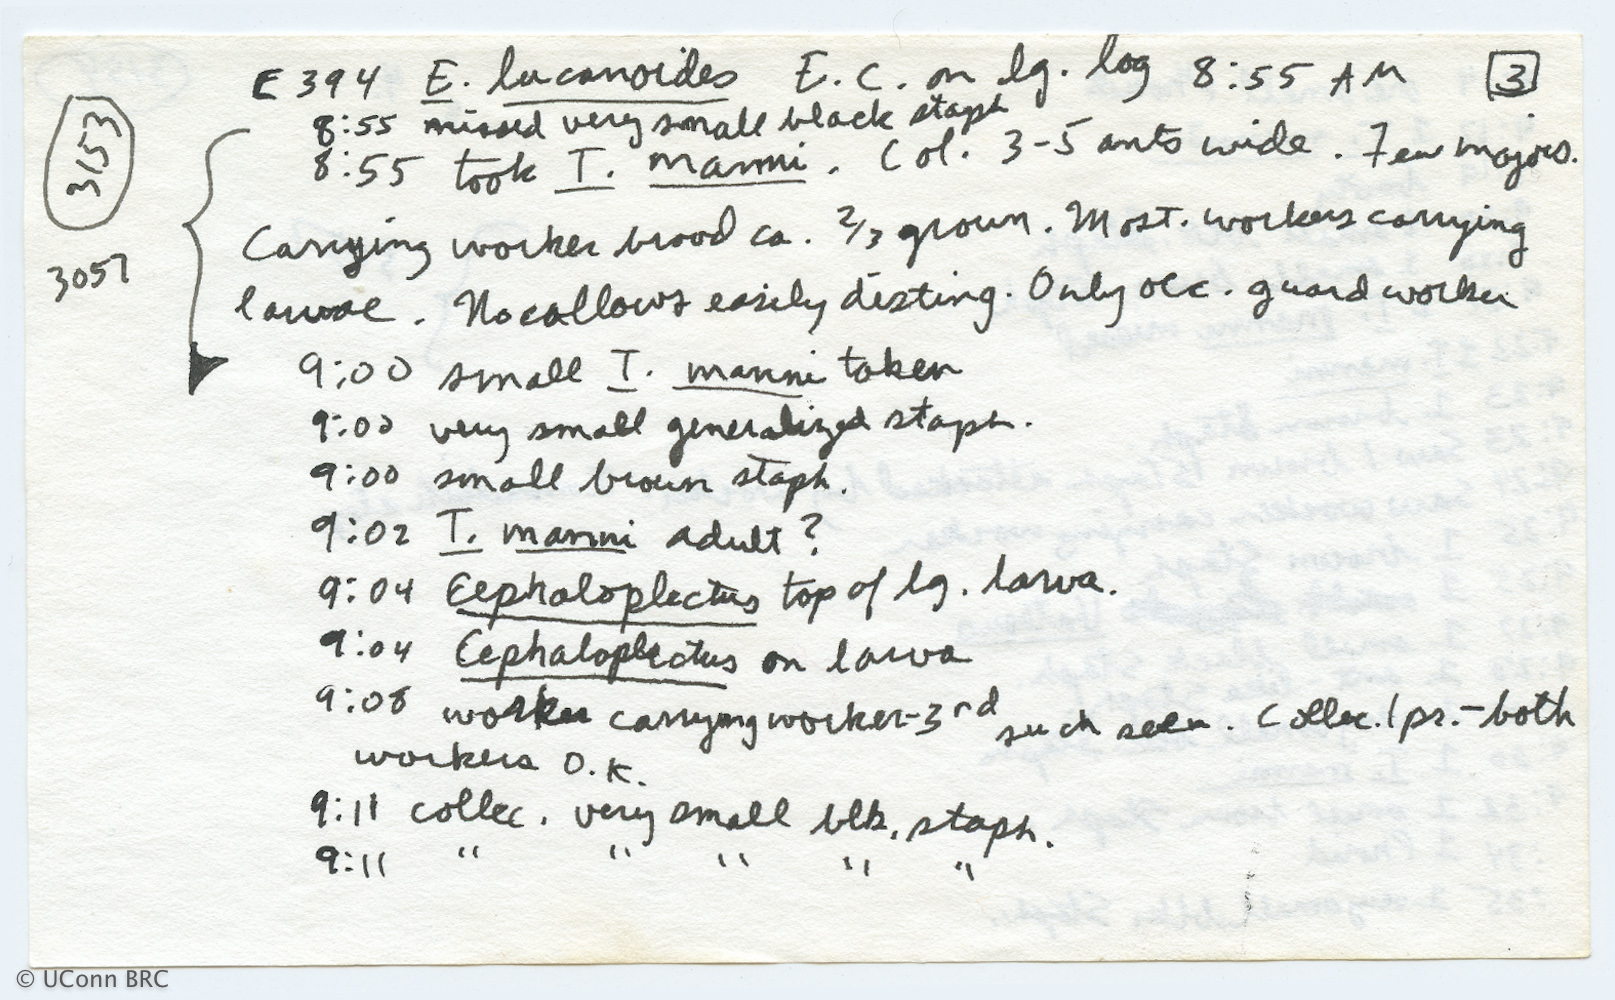 E 394 E. lucanoides E.C. on lg. log 8:55 AM 3
3153
8:55 missed very small black staph
8:55 took I. manni. Col. 3-5 ants wide. Few majors.
Carrying worker brood ca. 2/3 grown. Most. workers carrying
3057
larvae. No callows easily disting. Only occ. guard worker
9:00 small I. manni taken
9:00 very small generalized staph.
9:00 small brown staph.
9:02 I. manni adult?
9:04 Cephaloplectus top of lg. larva.
9:04 Cephaloplectus on larva
9:08 worker carrying worker-3rd such seen. Collec. 1 pr.-both
workers O.K.
9:11 collec. very small blk. staph.
9:11 " " " " "
© UConn BRC